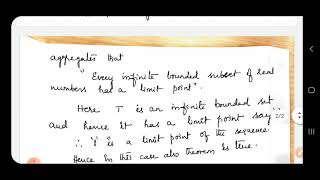 aggregates that
"Every infinite bounded subset of real
numbers has a limit point".
Here T is an infinite bounded set
and hence it has a limit point say
2/2
∴ is a limit point of the sequence
Hence in this case also theorem is true.